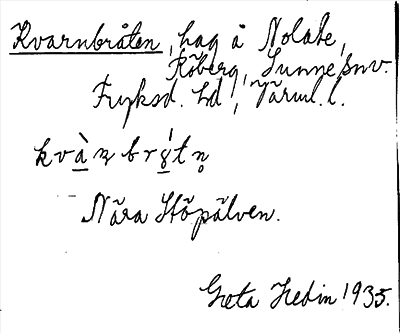 Kvarnbråten, hag å Nolabe,
Röberg, Sunne snv.
Fryksd. hd, Värml. l.
kvàṇbrọ́tn̥
Nära Stöpälven.
Greta Hedin 1935.